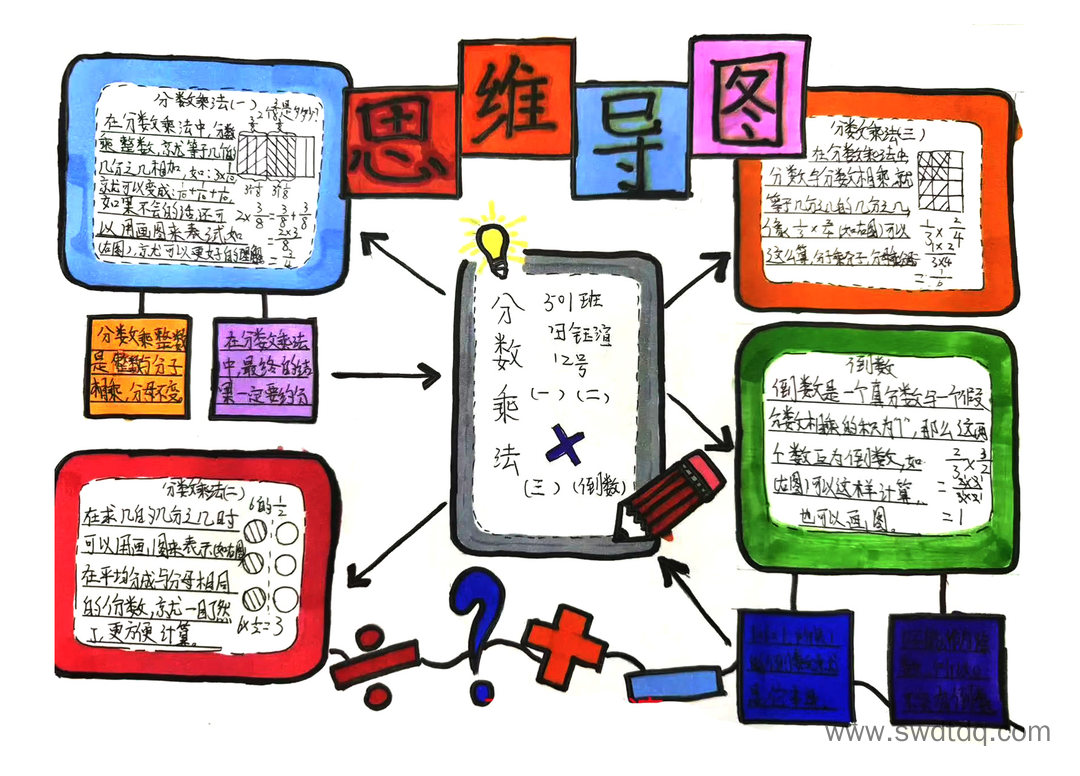 思维导图
分数乘法(一)
在分数乘法中,分数
乘整数,就等于几个
几分之几相加,如:3×1/10
就可以变成:1/10+1/10+1/10。
如果不会的话,还可
以用画图来表试,如
(左图),就可以更好的理解
2×3/8=3/8+3/8
=2×3/8
=3/4
分数乘整数
是整数与分子
相乘,分母不变
在分数乘法
中,最终的结
果一定要约分
分数乘法(二)
6的1/2
在求几的几分之几时
可以用画图来表示(如右图)
在平均分成与分母相同
的份数,就尤一目了然
了,更方便计算。
6×1/2=3
分数乘法
501班
田钰渲
12号
(一)(二)
×
(三)(倒数)
分数乘法(三)
在分数乘法中
分数与分数相乘,就
等于几分之几的几分之几,
(如右图)可以
这么算,分子乘分子,分母乘分母
1/3×2/4
=1×2/3×4
=1/6
倒数
倒数是一个真分数与一个假
分数相乘的积为"1",那么这两
个数互为倒数,如
(右图)可以这样计算
也可以画图。
2/3×3/2
=2×3/3×2
=1
www.swdtdq.com